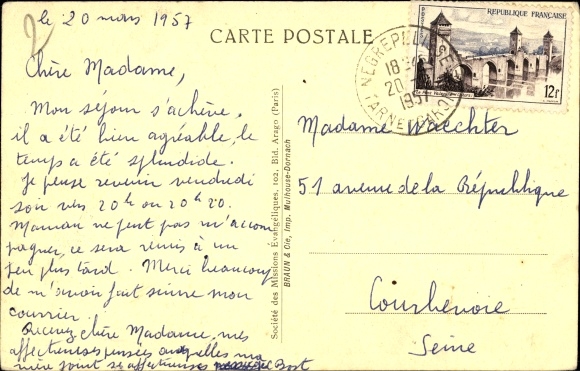 le 20 mars 1957
CARTE POSTALE
RÉPUBLIQUE FRANÇAISE
12F
NEGREPELISSE
18
20
1957
TARN-ET-GARONNE
Chère Madame,
Mon séjour s'achève,
il a été bien agréable, le
temps a été splendide.
Je pense revenir vendredi
soir vers 20h ou 20h20.
Maman ne peut pas m'accom
pagner, ce sera remis à un
peu plus tard. Merci beaucoup
de m'avoir fait suivre mon
courrier.
Recevez chère Madame, mes
affectueuses pensées auxquelles ma
mère joint ses affectueuses Bost
Société des Missions Évangéliques, 102, Bld. Arago (Paris)
BRAUN & Cie, Imp. Mulhouse-Dornach
Madame Waechter
51 avenue de la République
Courbevoie
Seine